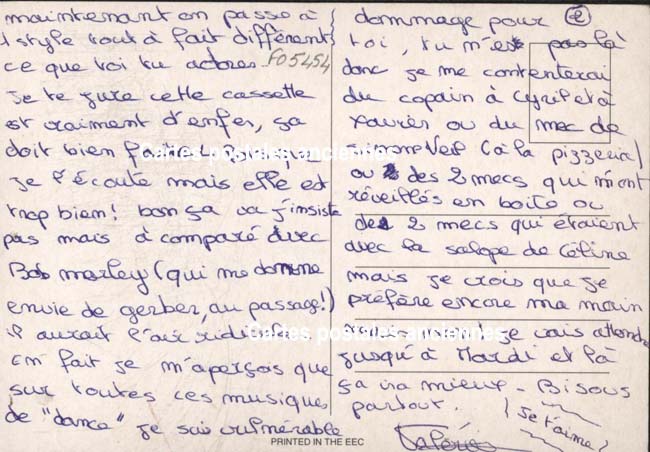 maintenant on passe à
1 style tout à fait différent
ce que toi tu adores FO5454
Je te jure cette cassette
est vraiment d'enfer, ça
doit bien
je l'écoute mais elle est
trop bien! bon ça va j'insiste
pas mais à comparé avec
Bob marley (qui me donne
envie de gerber, au passage!)
il aurait l'air
En fait je m'aperçois que
sur toutes ces musiques
de "dance" je suis vulnérable
dommage pour ②
toi, tu m'es pas là
donc je me contenterai
du copain à Cyril et à
Xavier ou du mec de
(à la pizzeria)
ou des 2 mecs qui m'ont
réveillés en boîte ou
des 2 mecs qui étaient
avec la salope de Céline
mais je crois que je
préfère encore ma main
je vais attendre
jusqu'à Mardi et là
ça ira mieux - Bisous
partout. Je t'aime!
Valérie
Cartes postales anciennes
Cartes postales anciennes
PRINTED IN THE EEC